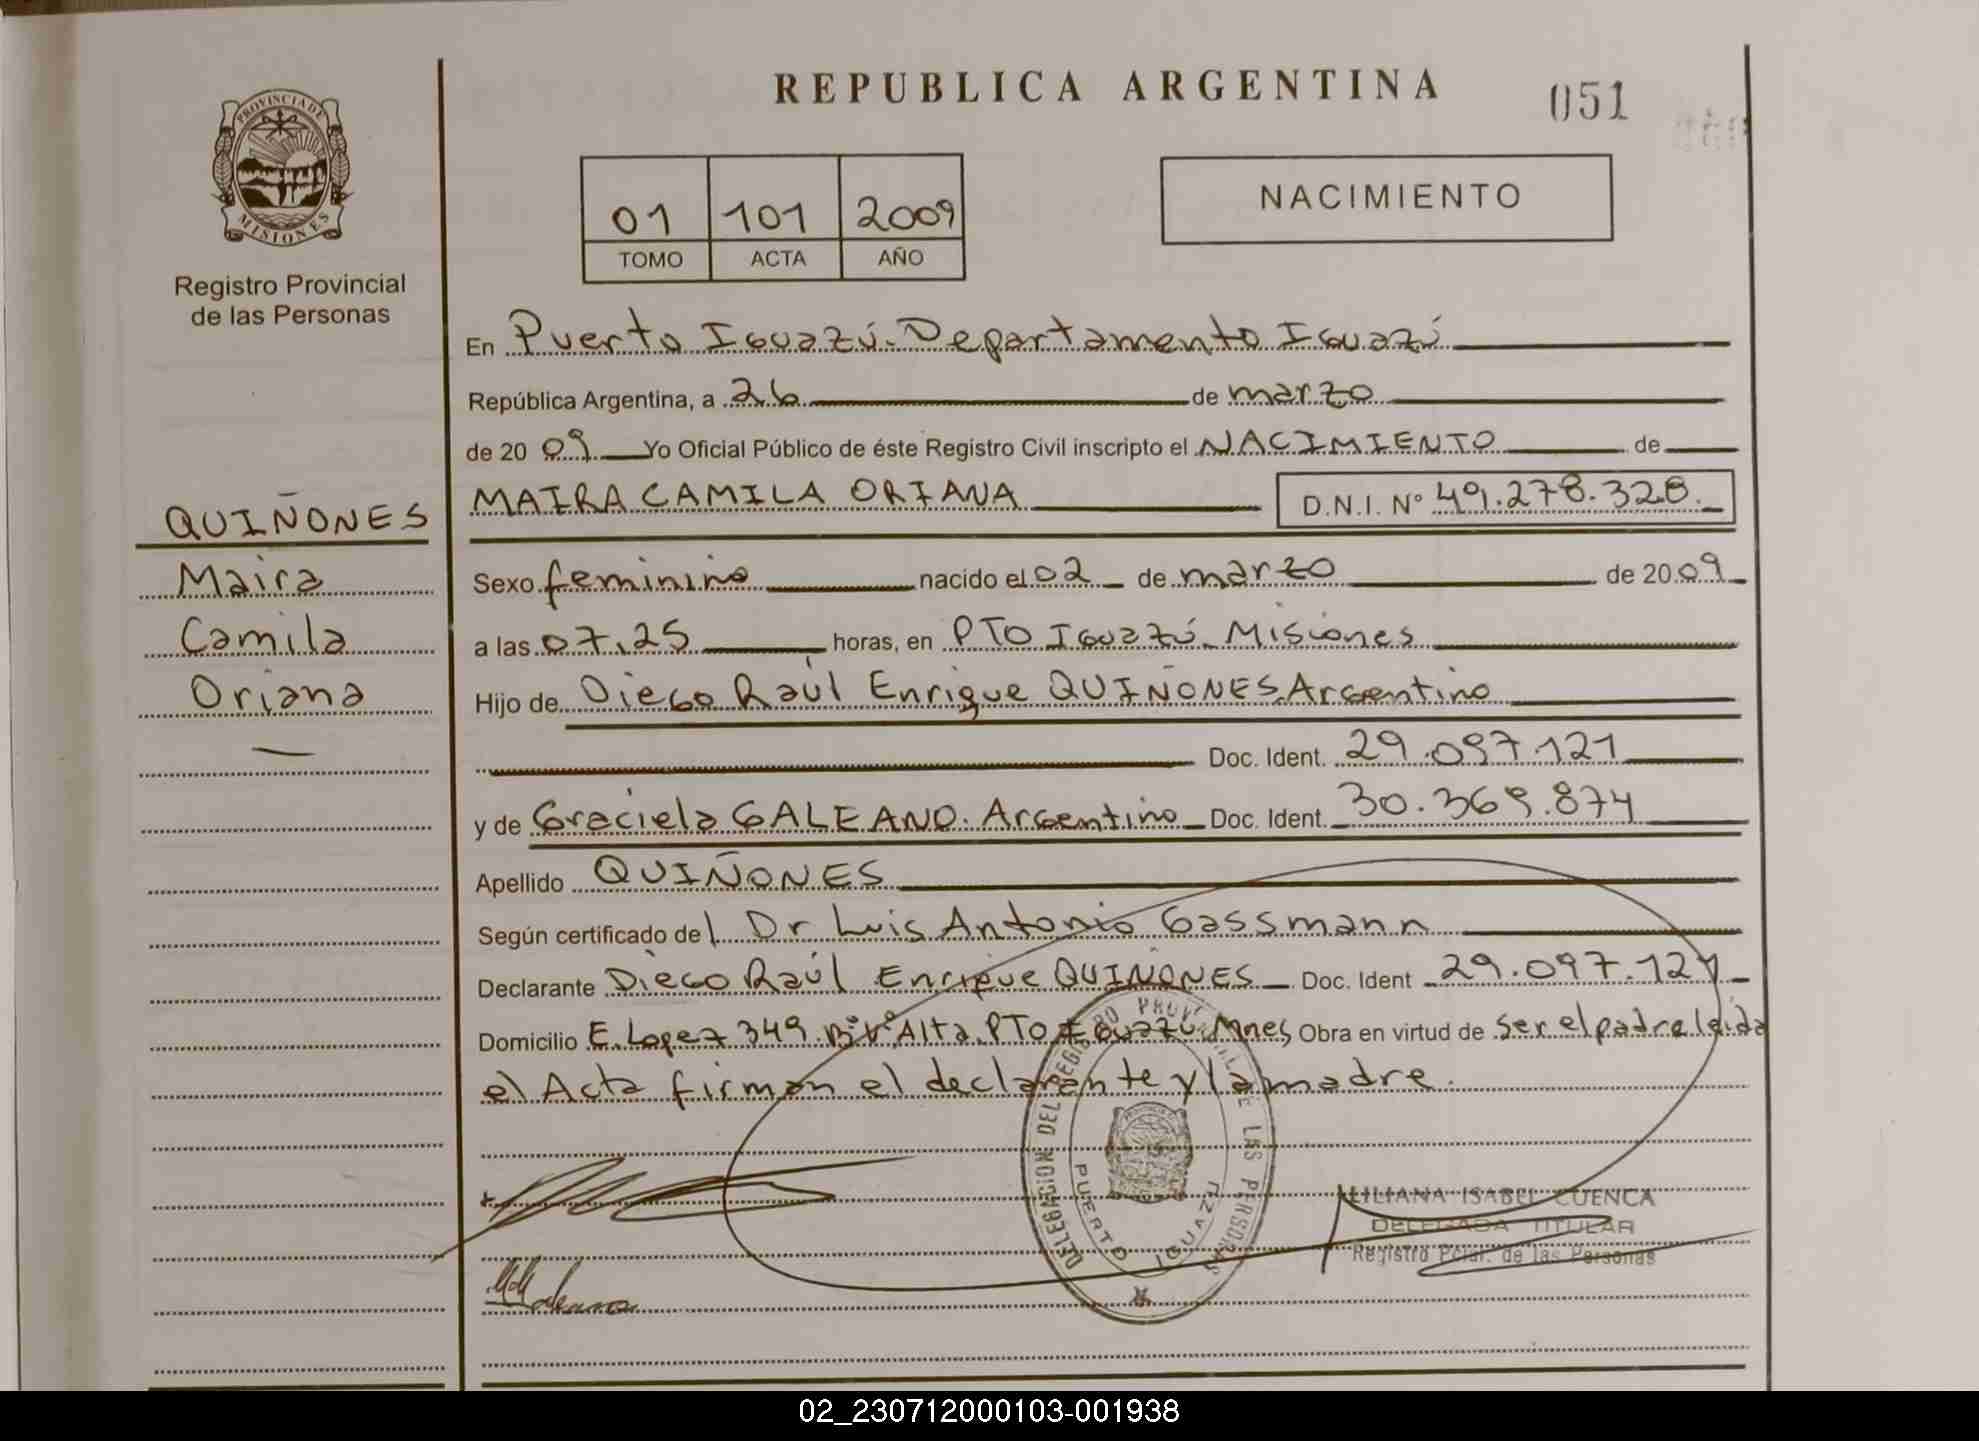 REPUBLICA ARGENTINA
051
PROVINCIA DE
MISIONES
Registro Provincial
de las Personas
01 101 2009
TOMO ACTA AÑO
NACIMIENTO
En Puerto Iguazú. Departamento Iguazú
República Argentina, a 26 de marzo
de 20 09 Yo Oficial Público de éste Registro Civil inscripto el NACIMIENTO de
MAIRA CAMILA ORIANA D.N.I. Nº 49.278.328.
QUIÑONES
Maira
Camila
Oriana
Sexo feminino nacido el 02 de marzo de 20 09
a las 07.25 horas, en PTO Iguazú. Misiones
Hijo de Diego Raúl Enrique QUIÑONES. Argentino
Doc. Ident. 29.097.121
y de Graciela GALEANO. Argentino Doc. Ident. 30.369.874
Apellido QUIÑONES
Según certificado del Dr Luis Antonio Gassmann
Declarante Diego Raúl Enrique QUIÑONES Doc. Ident 29.097.121
Domicilio E. Lopez 349. Bº Vº Alta. PTO Iguazú Mnes Obra en virtud de ser el padre leida
el Acta firman el declarante y la madre.
DELEGACION DEL REGISTRO PROVINCIAL DE LAS PERSONAS
PUERTO IGUAZU
LILIANA ISABEL CUENCA
DELEGADA TITULAR
Registro Pcial. de las Personas
02_230712000103-001938